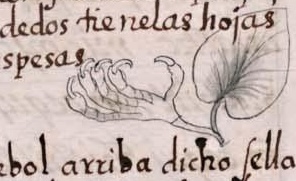 dedos tienelas hojas
spesas
rbol arriba dicho sella